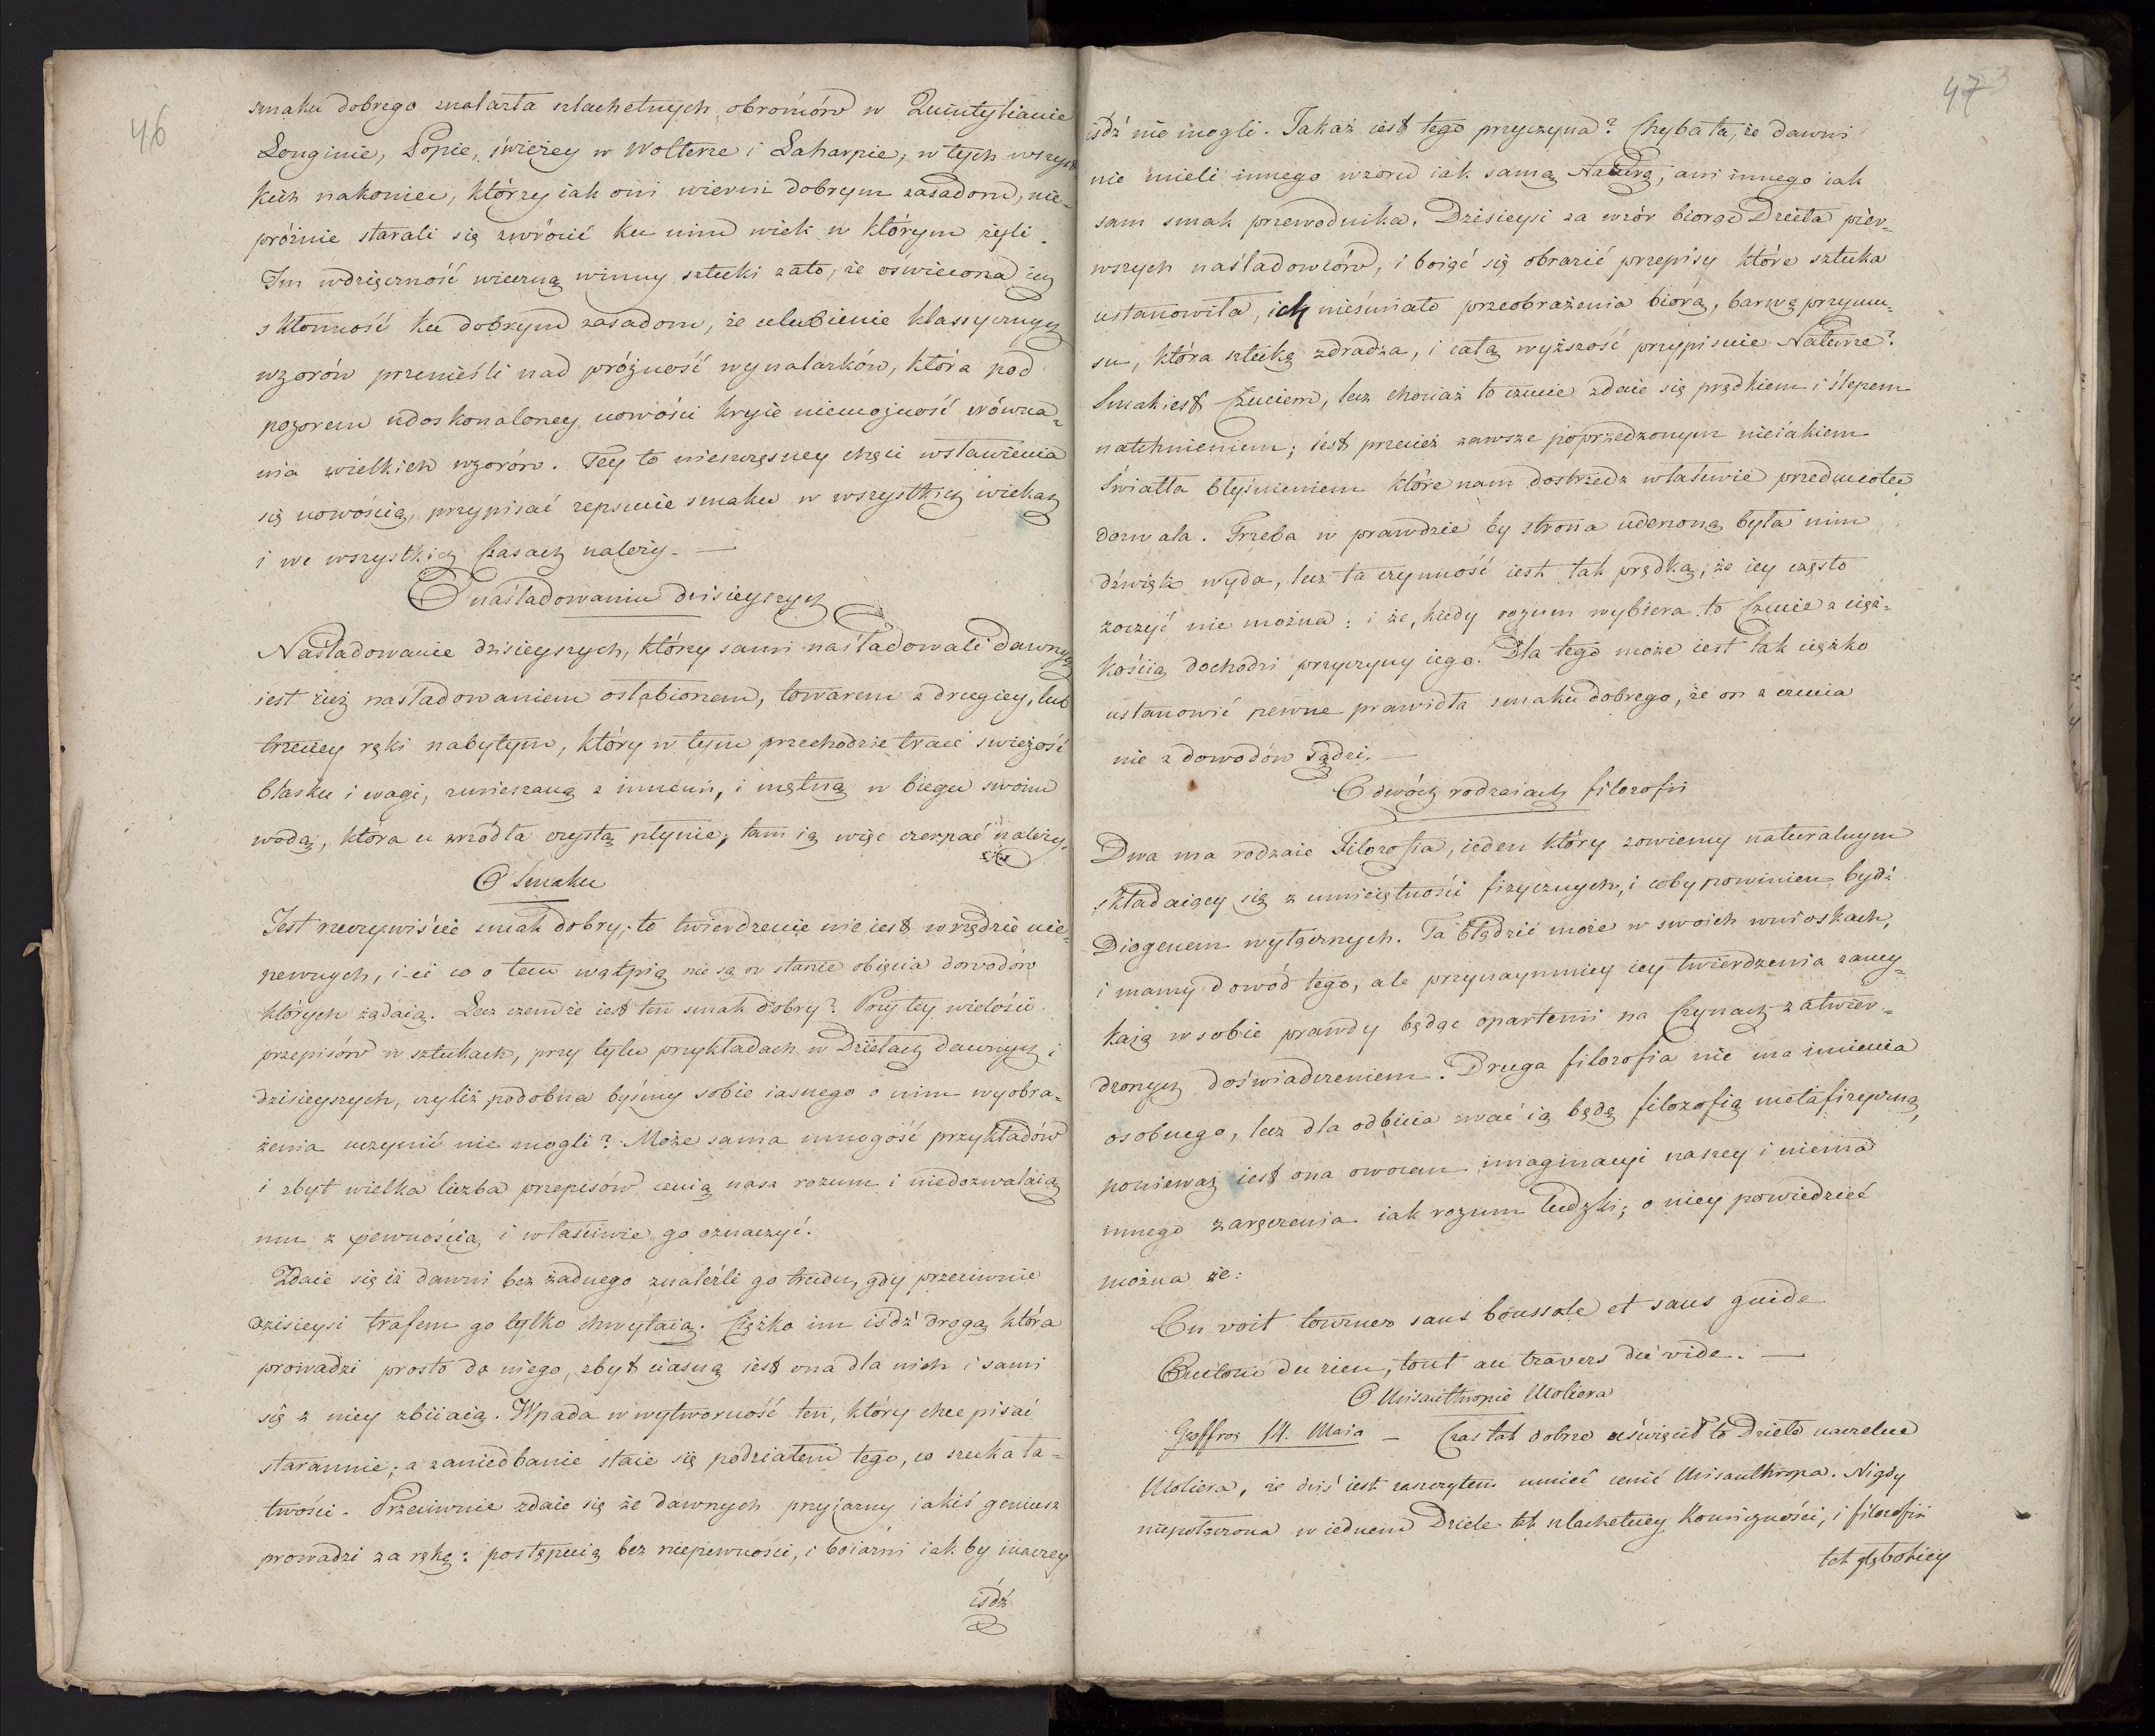 46
smaku dobrego znalazła szlachetnych obrońców w Quintylianie
Longinie, Popie, świeżey w Wolterze i Laharpie, w tych wszyst
kich nakoniec, którzy iak oni wierni dobrym zasadom, nie-
próżnie starali się zwrócić ku nim wiek w którym żyli.
Im wdzięczność wieczną winny sztuki zato, że oświecona ich
skłonność ku dobrym zasadom, że ulubienie klassycznych
wzorów przenieśli nad próżność wynalazków, która pod
pozorem udoskonaloney nowości kryie niemożność zrówna-
nia wielkich wzorów. Tey to nieszczęsney chęci wsławienia
się nowością, przypisać zepsucie smaku w wszystkich wiekach
i we wszystkich Czasach należy. —
O naśladowaniu dzisieyszych
Naśladowanie dzisieyszych, którzy sami naśladowali dawnych
iest iuż nasladowaniem osłabionem, towarem z drugiey, lub
trzeciey ręki nabytym, który w tym przechodzie traci swieżość
blasku i wagi, zmieszaną z innemi, i mętną w biegu swoim
wodą, która u źrzódła czystą płynie; tam ią więc czerpać należy.
O Smaku
Jest rzeczywiście smak dobry; to twierdzenie nie iest w rzędzie nie-
pewnych, i ci co o tem wątpią nie są w stanie obięcia dowodów
których żądaią. Lecz czemże iest ten smak dobry? Przy tey wielości
przepisów w sztukach, przy tylu przykładach w Dziełach dawnych i
dzisieyszych, czyliż podobna byśmy sobie iasnego o nim wyobra-
żenia uczynić nie mogli? Może sama mnogość przykładów
i zbyt wielka liczba przepisów nasz rozum i niedozwalaią
mu z pewnością i właściwie go oznaczyć.
Zdaie się iż dawni bez żadnego znaleźli go trudu, gdy przeciwnie
dzisieysi trafem go tylko chwytaią. Ciężko im iśdź drogą która
prowadzi prosto do niego, zbyt ciasną iest ona dla nich i sami
się z niey zbiiaią. Wpada w wytworność ten, który chce pisać
starannie; a zaniedbanie staie się podziałem tego, co szuka ła-
twości. Przeciwnie zdaie się że dawnych przyiazny iakiś geniusz
prowadzi za rękę: postępuią bez niepewności, i boiaźni iak by inaczey
iśdź
47
iśdź nie mogli. Jakaż iest tego przyczyna? Chyba ta, że dawni
nie mieli innego wzoru iak samą Naturę, ani innego iak
sam smak przewodnika. Dzisieysi za wzór biorąc Dzieła pier-
wszych naśladowców, i boiąć się obrazić przepisy które sztuka
ustanowiła, ich nieśmiało przeobrażenia biorą, barwę przymu-
su, która sztukę zdradza, i całą wyższość przypisuie Naturze?
Smak iest Czuciem, lecz chociaż to czucie zdaie się prędkiem i ślepem
natchnieniem; iest przecież zawsze poprzedzonym nieiakiem
światła błyśnieniem które nam dostrzedz właściwie przedmiotu
dozwala. Trzeba w prawdzie by strona uderzoną była nim
dźwięk wyda, lecz ta czynność iest tak prędką, że iey często
zoczyć nie można: i że, kiedy rozum wybiera to Czucie z cięż-
kością dochodzi przyczyny iego. Dla tego może iest tak ciężko
ustanowić pewne prawidła smaku dobrego, że on z czucia
nie z dowodów sądzi. —
O dwóch rodzaiach filozofii
Dwa ma rodzaie Filozofia, ieden który zowiemy naturalnym
składaiący się z umieiętności fizycznych, i coby powinien bydź
Diogenem wytgernych. Ta błądzić może w swoich wnioskach,
i mamy dowód tego, ale przynaymniey iey twierdzenia zamy-
kaią w sobie prawdy będąc opartemi na Czynach zatwier-
dzonych doświadczeniem. Druga filozofia nie ma imienia
osobnego, lecz dla odbicia zwać ią będę filozofią metafizyczną,
ponieważ iest ona owocem imaginacyi naszey i niema
innego zaręczenia iak rozum ludzki; o niey powiedzieć
można że:
On voit tourner sans boussole et sans guide
du rien, tout au travers du vide. —
O Misanthropie Moliera
Geoffroi 14. Maia — Czas tak dobrze uświęcił to Dzieło naczelne
Moliera, że dziś iest zaszczytem umieć cenić Misanthropa. Nigdy
niepołączona w iednem Dziele tak szlachetney Komiczności, i filozofii
tak głębokiey